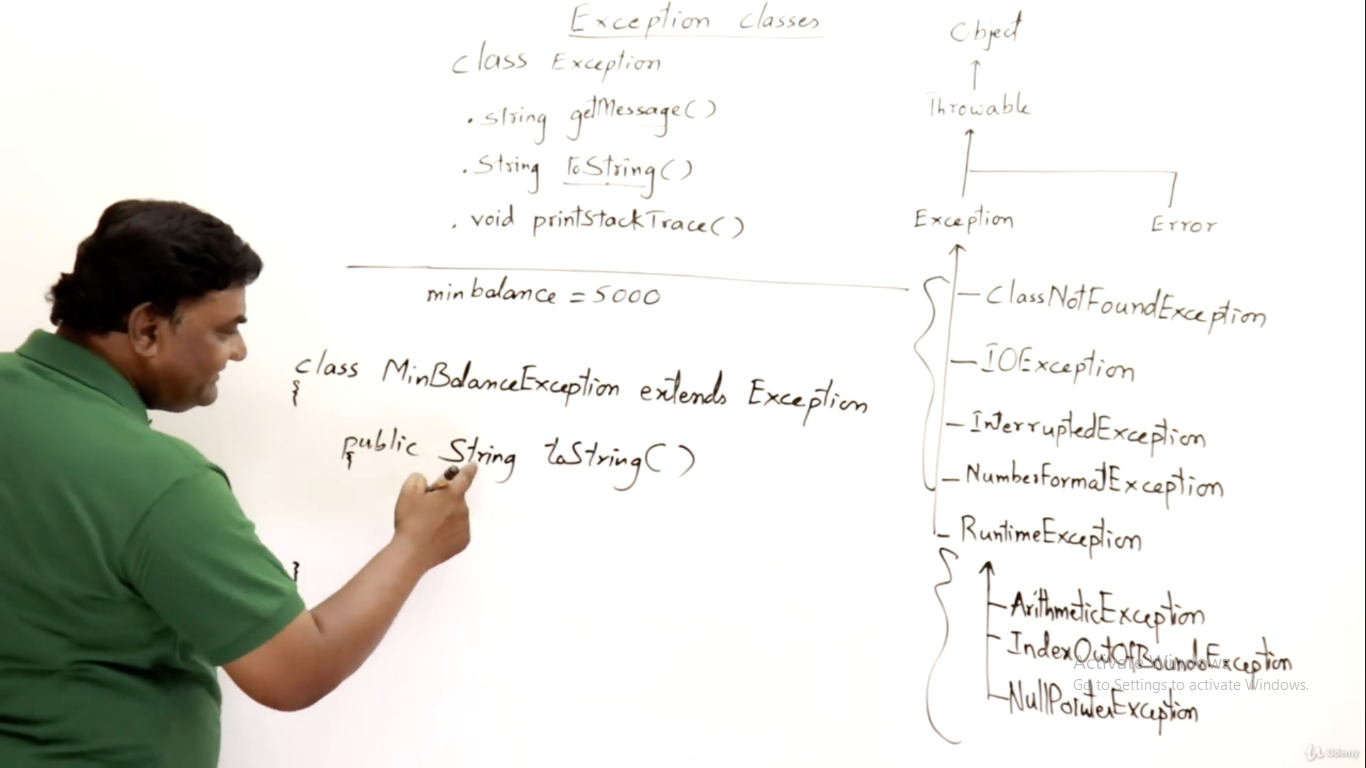 Exception classes
class Exception
. string getMessage()
. String toString()
. void printStackTrace()
minbalance = 5000
class MinBalanceException extends Exception
{
public String toString()
{
}
Object
Throwable
Exception
Error
ClassNotFoundException
IOException
InterruptedException
NumberFormatException
RuntimeException
ArithmeticException
IndexOutOfBoundsException
NullPointerException
Activate Windows
Go to Settings to activate Windows.
Udemy